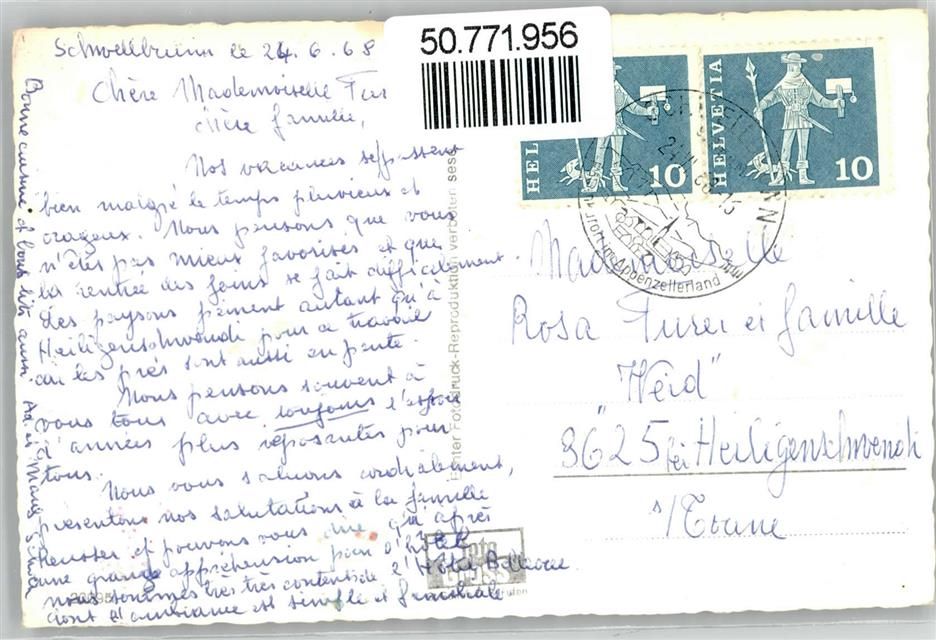 50.771.956
Schwellbrunn le 24.6.68
Chère Mademoiselle
chère famille,
Nos vacances se passent
bien malgré le temps pluvieux et
orageux. Nous pensons que vous
n'êtes pas mieux favorisés et que
la rentrée des foins se fait difficilement.
Les paysans peinent autant qu'à
Heiligenschwendi pour ce travail
car les prés sont aussi en pente.
Nous pensons souvent à
vous tous avec toujours l'espoir
d'années plus reposantes pour
tous.
Nous vous saluons cordialement,
présentons nos salutations à la famille
Reusser et pouvons vous dire qu'après
une grande appréhension pour l'hôtel
nous sommes très très contents de l'Hôtel Bellevue
dont l'ambiance est simple et familiale
Bonne cueillie et bons lits aussi.
Echter Fotodruck-Reproduktion verboten
HELVETIA
10
HEL
10
Kurort im Appenzellerland
Mademoiselle
Rosa Furer et famille
"Weid"
3625 bei Heiligenschwendi
s/Thoune
foto
gross